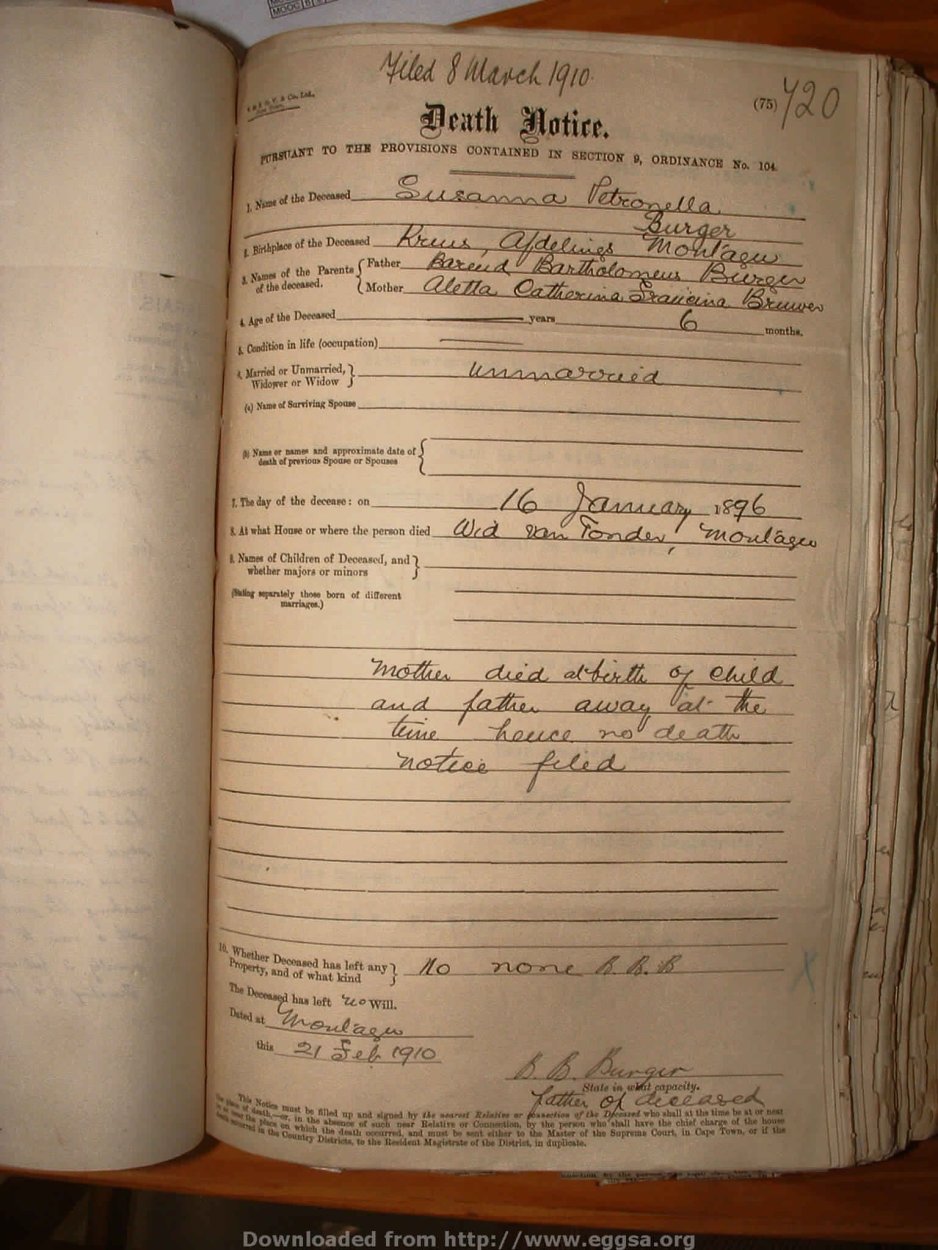 MOOC 6
Filed 8 March 1910
(75) 420
Death Notice.
PURSUANT TO THE PROVISIONS CONTAINED IN SECTION 9, ORDINANCE No. 104.
1. Name of the Deceased Susanna Petronella
Burger
2. Birthplace of the Deceased Afdelings Montagu
3. Names of the Parents of the deceased. { Father Barend Bartholomeus Burger
Mother Aletta Catherina Francina Bruwer
4. Age of the Deceased years 6 months.
5. Condition in life (occupation)
6. Married or Unmarried, Widower or Widow } unmarried
(a) Name of Surviving Spouse
(b) Name or names and approximate date of death of previous Spouse or Spouses {
7. The day of the decease: on 16 January 1896
8. At what House or where the person died Wid van Tonder, Montagu
9. Names of Children of Deceased, and whether majors or minors }
(Stating separately those born of different marriages.)
Mother died at birth of child
and father away at the
time hence no death
notice filed
10. Whether Deceased has left any Property, and of what kind } No none B. B. B
The Deceased has left no Will.
Dated at Montagu
this 21 Feb 1910
B. B. Burger
State in what capacity.
father of deceased
This Notice must be filled up and signed by the nearest Relative or connection of the Deceased who shall at the time be at or near
the place of death,—or, in the absence of such near Relative or Connection, by the person who shall have the chief charge of the house
in or near the place on which the death occurred, and must be sent either to the Master of the Supreme Court, in Cape Town, or if the
death occurred in the Country Districts, to the Resident Magistrate of the District, in duplicate.
Downloaded from http://www.eggsa.org